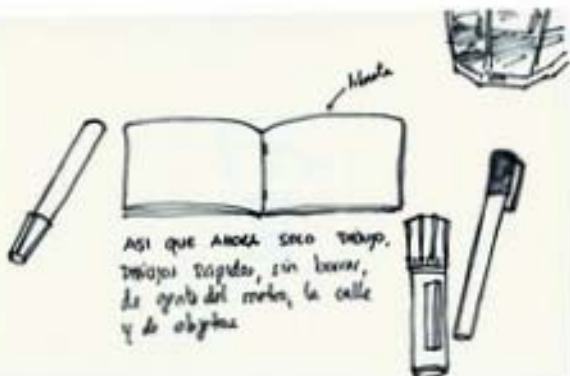 libreta
ASI QUE AHORA SOLO DIBUJO,
DIBUJOS RÁPIDOS, sin borrar,
de gente del metro, la calle
y de objetos